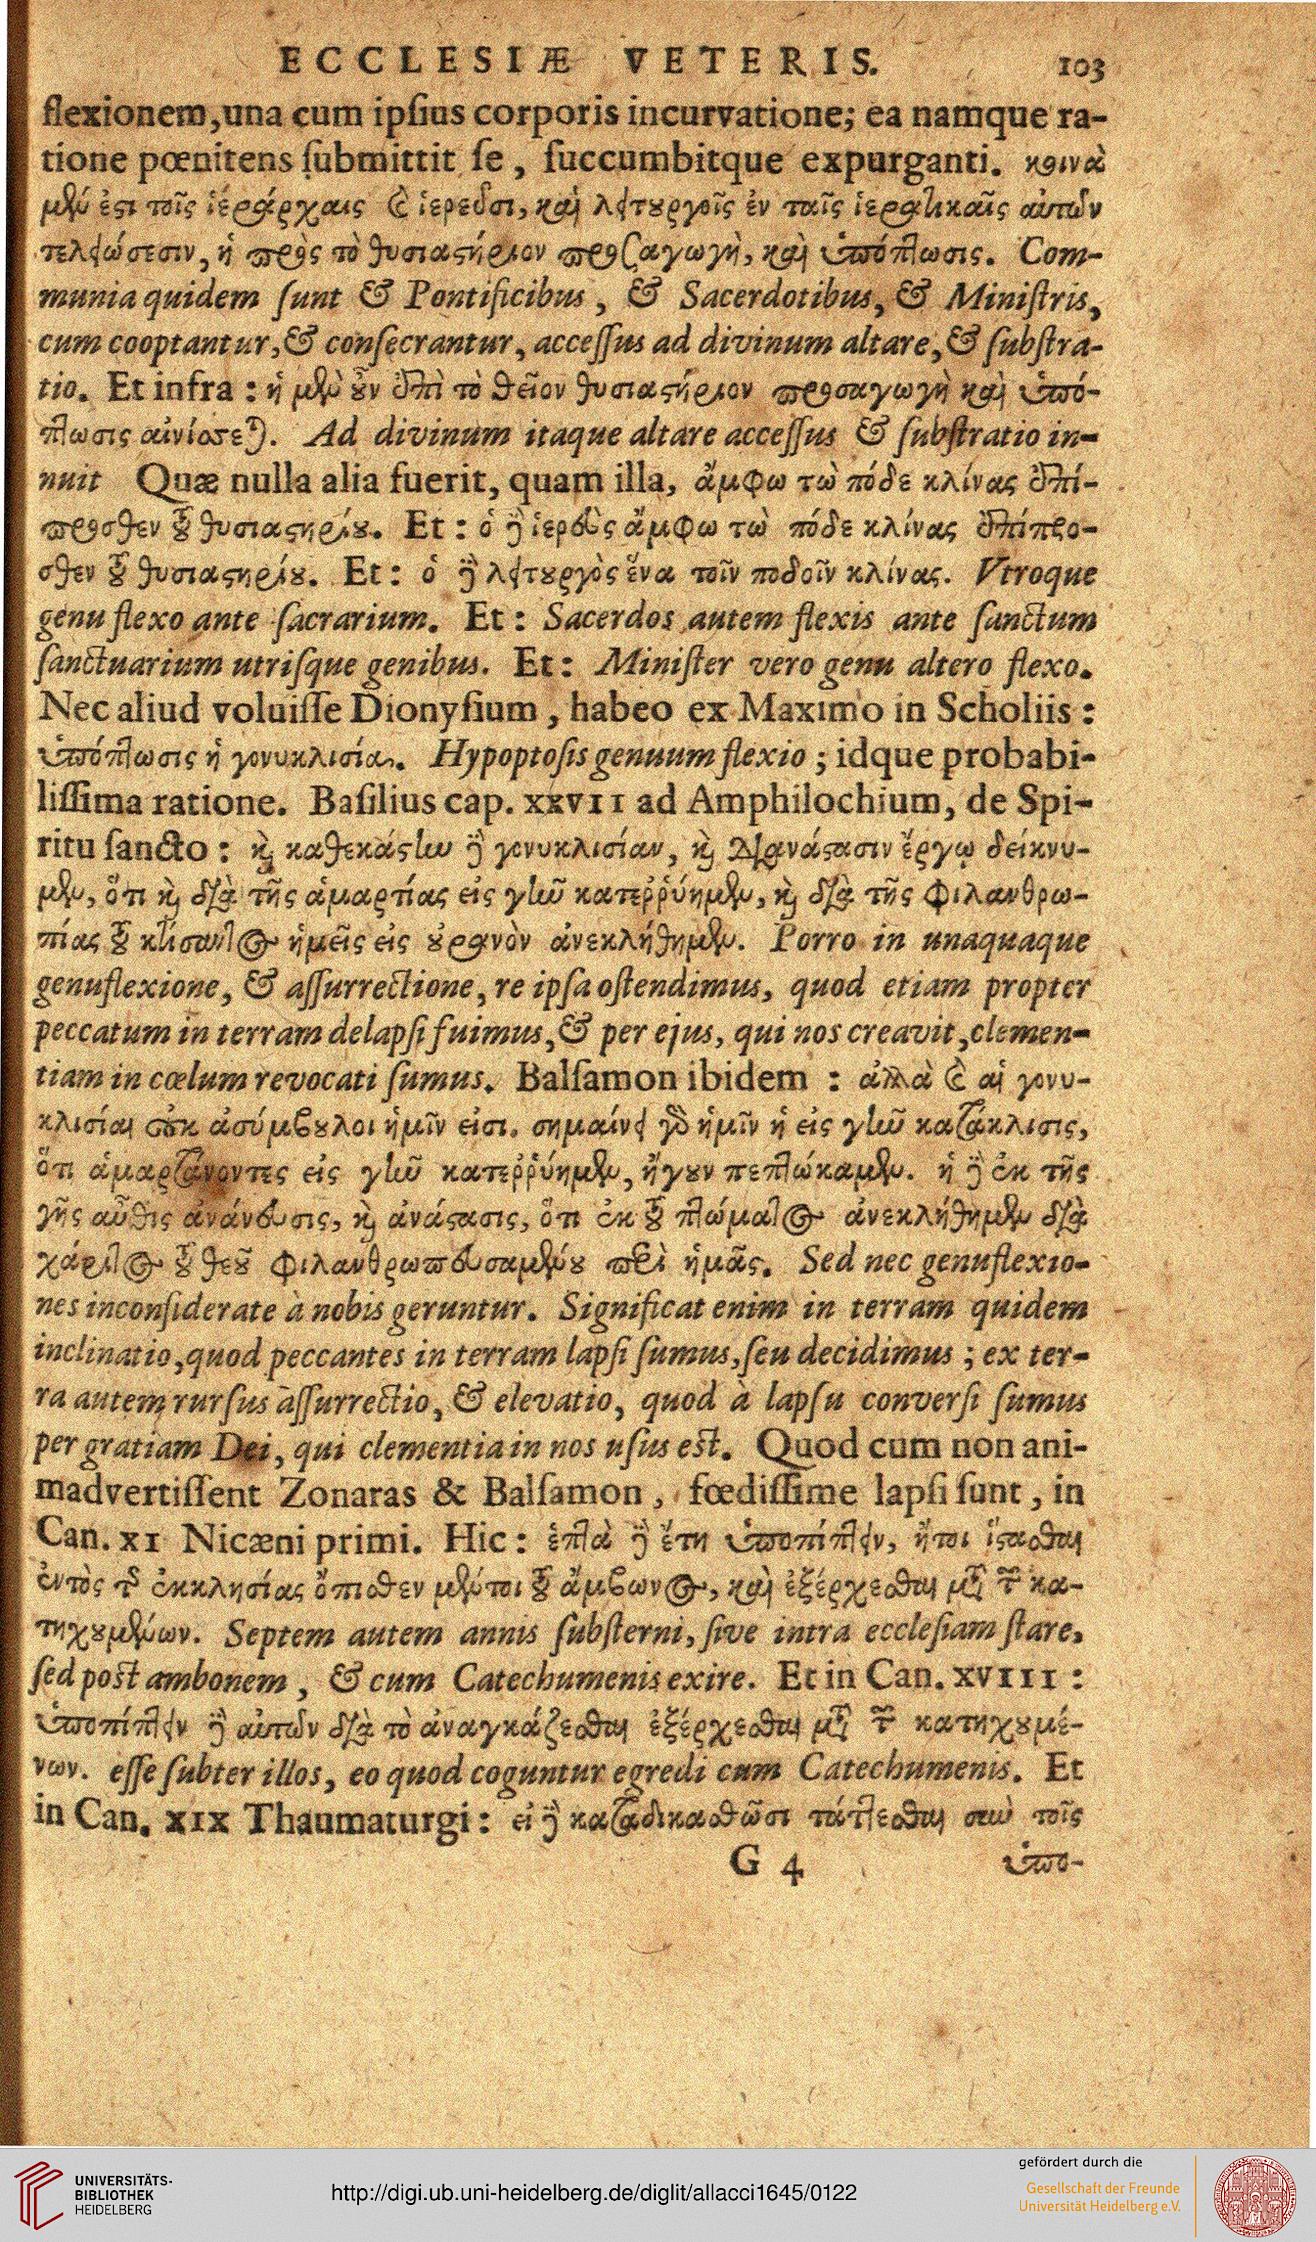 ECCLESIÆ VETERIS. 103
flexionem, una cum ipſius corporis incurvatione; ea namque ra-
tione pœnitens ſubmittit ſe, ſuccumbitque expurganti. κοινὰ
μὲν ἐστι τοῖς ἱεράρχαις καὶ ἱερεῦσι, καὶ λειτουργοῖς ἐν ταῖς ἱερατικαῖς αὐτῶν
τελειώσεσιν, ἡ πρὸς τὸ θυσιαστήριον προσαγωγὴ, καὶ ὑπόπτωσις. Com-
munia quidem ſunt & Pontificibus, & Sacerdotibus, & Miniſtris,
cum cooptantur, & conſecrantur, acceſſus ad divinum altare, & ſubſtra-
tio. Et infra: ἡ μὲν οὖν ἐπὶ τὸ θεῖον θυσιαστήριον προσαγωγὴ καὶ ὑπό-
πτωσις αἰνίσσεται. Ad divinum itaque altare acceſſus & ſubſtratio in-
nuit Quæ nulla alia fuerit, quam illa, ἄμφω τὼ πόδε κλίνας ἐπί-
προσθεν τοῦ θυσιαστηρίου. Et: ὁ δὲ ἱερεὺς ἄμφω τὼ πόδε κλίνας ἐπίπρο-
σθεν τοῦ θυσιαστηρίου. Et: ὁ δὲ λειτουργὸς ἕνα τοῖν ποδοῖν κλίνας. Vtroque
genu flexo ante ſacrarium. Et: Sacerdos autem flexis ante ſanctum
ſanctuarium utriſque genibus. Et: Miniſter vero genu altero flexo.
Nec aliud voluiſſe Dionyſium, habeo ex Maximo in Scholiis:
ὑπόπτωσις ἡ γονυκλισία. Hypoptoſis genuum flexio; idque probabi-
liſſima ratione. Baſilius cap. XXVII ad Amphilochium, de Spi-
ritu ſancto: καὶ καθεκάστην δὲ γονυκλισίαν, καὶ διανάστασιν ἔργῳ δείκνυ-
μεν, ὅτι καὶ διὰ τῆς ἁμαρτίας εἰς γῆν κατεῤῥύημεν, καὶ διὰ τῆς φιλανθρω-
πίας τοῦ κτίσαντος ἡμεῖς εἰς οὐρανὸν ἀνεκλήθημεν. Porro in unaquaque
genuflexione, & aſſurrectione, re ipſa oſtendimus, quod etiam propter
peccatum in terram delapſi fuimus, & per ejus, qui nos creavit, clemen-
tiam in cœlum revocati ſumus. Balſamon ibidem: ἀλλὰ καὶ αἱ γονυ-
κλισίαι οὐκ ἀσύμβουλοι ἡμῖν εἰσι. σημαίνει γὰρ ἡμῖν ἡ εἰς γῆν κατάκλισις,
ὅτι ἁμαρτάνοντες εἰς γῆν κατεῤῥύημεν, ἤγουν πεπτώκαμεν. ἡ δὲ ἐκ τῆς
γῆς αὖθις ἀνάνευσις, καὶ ἀνάστασις, ὅτι ἐκ τοῦ πτώματος ἀνεκλήθημεν διὰ
χάριτος τοῦ θεοῦ φιλανθρωπευσαμένου περὶ ἡμᾶς. Sed nec genuflexio-
nes inconſiderate à nobis geruntur. Significat enim in terram quidem
inclinatio, quod peccantes in terram lapſi ſumus, ſeu decidimus; ex ter-
ra autem rurſus aſſurrectio, & elevatio, quod à lapſu converſi ſumus
per gratiam Dei, qui clementia in nos uſus est. Quod cum non ani-
madvertiſſent Zonaras & Balſamon, fœdiſſime lapſi ſunt, in
Can. XI Nicæni primi. Hic: ἑπτὰ δὲ ἔτη ὑποπίπτειν, ἤτοι ἵστασθαι
ἐντὸς τῆς ἐκκλησίας ὄπισθεν μέντοι τοῦ ἄμβωνος, καὶ ἐξέρχεσθαι μετὰ τῶν κα-
τηχουμένων. Septem autem annis ſubſterni, ſive intra eccleſiam ſtare,
ſed post ambonem, & cum Catechumenis exire. Et in Can. XVIII:
ὑποπίπτειν δὲ αὐτῶν διὰ τὸ ἀναγκάζεσθαι ἐξέρχεσθαι μετὰ τῶν κατηχουμέ-
νων. eſſe ſubter illos, eo quod coguntur egredi cum Catechumenis. Et
in Can. XIX Thaumaturgi: εἰ δὲ καταδικασθῶσι τάττεσθαι σὺν τοῖς
G 4 ὑπο-
UNIVERSITÄTS-
BIBLIOTHEK
HEIDELBERG
http://digi.ub.uni-heidelberg.de/diglit/allacci1645/0122
gefördert durch die
Gesellschaft der Freunde
Universität Heidelberg e.V.